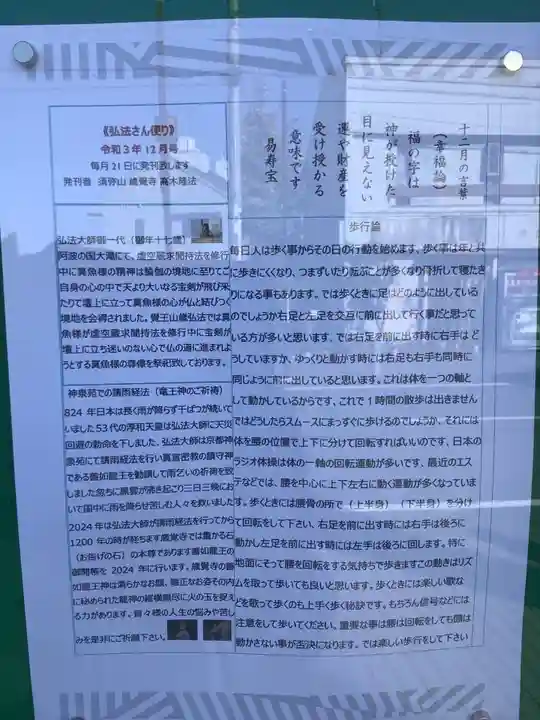 《弘法さん便り》
令和3年12月号
毎月21日に発刊致します
発刊者 須弥山 歳覚寺 高木隆法
十二月の言葉
(幸福論)
福の字は
神が授けた
目に見えない
運や財産を
受け授かる
意味です
易寿宝
弘法大師御一代(御年十七歳)
阿波の国大滝にて、虚空蔵求聞持法を修行
中に真魚様の精神は瑜伽の境地に至りてご
自身の心の中で天より大いなる宝剣が飛び来
たりて壇上に立って真魚様の心が仏と結びつく
境地を会得されました。覚王山修仏法では真
魚様が虚空蔵求聞持法を修行中に宝剣が
壇上に立ち迷いのない心で仏の道に進まれよ
うとする真魚様の尊像を祭祀致しております。
神泉苑での請雨経法(竜王神のご祈祷)
824年日本は長く雨が降らず干ばつが続いて
いました53代の淳和天皇は弘法大師に天災
回避の勅命を下しました、弘法大師は京都神
泉苑にて請雨経法を行い真言密教の鎮守神
である善如龍王を勧請して雨乞いの祈祷を致
しました忽ちに黒雲が湧き起こり三日三晩にお
いて国中に雨を降らせ苦しむ人々を救いました
2024年は弘法大師が請雨経法を行ってから
1200年の時が経ちます歳覚寺では重かる石
(お告げの石)の本尊であります善如龍王の
御開帳を2024年に行います。歳覚寺の善
如龍王神は清らかなお顔、端正なお姿その内
に秘められた龍神の縦横無尽に火の玉を捉え
る力があります。皆々様の人生の悩みや苦し
みを是非にご祈願下さい。
歩行論
毎日人は歩く事からその日の行動を始めます、歩く事は年と共
に歩きにくくなり、つまずいたり転ぶことが多くなり骨折して寝たき
りになる事もあります。では歩くときに足はどのように出している
のでしょうか右足と左足を交互に前に出して行く事だと思って
いる方が多いと思います、では右足を前に出す時に右手は ど
うしていますか、ゆっくりと動かす時には右足も右手も同時に
同じように前に出していると思います。これは体を一つの軸と
して動かしているからです、これで1時間の散歩は出来ません
ではどうしたらスムースにまっすぐに歩けるのでしょうか、それには
体を腰の位置で上下に分けて回転すればいいのです、日本の
ラジオ体操は体の一軸の回転運動が多いです、最近のエス
テなどでは、腰を中心に上下左右に動く運動が多くなっていま
す。歩くときには腰骨の所で(上半身)(下半身)を分け
て回転をして下さい、右足を前に出す時には右手は後ろに
動かし左足を前に出す時には左手は後ろに回します。特に
地面にそって腰を回転をする気持ちで歩きますこの動きはリズ
ムを取って歩いても良いと思います。歩くときには楽しい歌な
どを歌って歩くのも上手く歩く秘訣です。もちろん信号などには
注意をして歩いてください。重要な事は腰は回転をしても頭は
動かさない事が否決になります。では楽しい歩行をして下さい